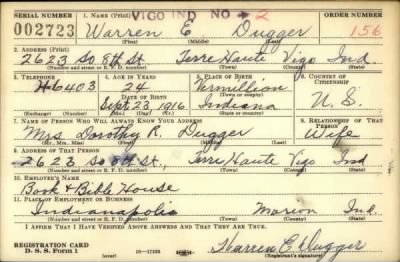 SERIAL NUMBER 1. NAME (Print) VIGO IND NO 2 ORDER NUMBER
002723 Warren E Dugger 156
(First) (Middle) (Last)
2. ADDRESS (Print)
2623 So 8th St. Terre Haute Vigo Ind.
(Number and street or R. F. D. number) (Town) (County) (State)
3. TELEPHONE 4. AGE IN YEARS 5. PLACE OF BIRTH 6. COUNTRY OF CITIZENSHIP
H6403 24 Vermillion
DATE OF BIRTH (Town or county)
Sept 23, 1916 Indiana U.S.
(Exchange) (Number) (Mo.) (Day) (Yr.) (State or country)
7. NAME OF PERSON WHO WILL ALWAYS KNOW YOUR ADDRESS 8. RELATIONSHIP OF THAT PERSON
Mrs. Dorothy R. Dugger Wife
(Mr., Mrs., Miss) (First) (Middle) (Last)
9. ADDRESS OF THAT PERSON
2623 So 8th St., Terre Haute Vigo Ind
(Number and street or R. F. D. number) (Town) (County) (State)
10. EMPLOYER'S NAME
Book & Bible House
11. PLACE OF EMPLOYMENT OR BUSINESS
Indianapolis Marion Ind.
(Number and street or R. F. D. number) (Town) (County) (State)
I AFFIRM THAT I HAVE VERIFIED ABOVE ANSWERS AND THAT THEY ARE TRUE.
REGISTRATION CARD
D. S. S. Form 1 (over) Warren E. Dugger
(Registrant's signature)